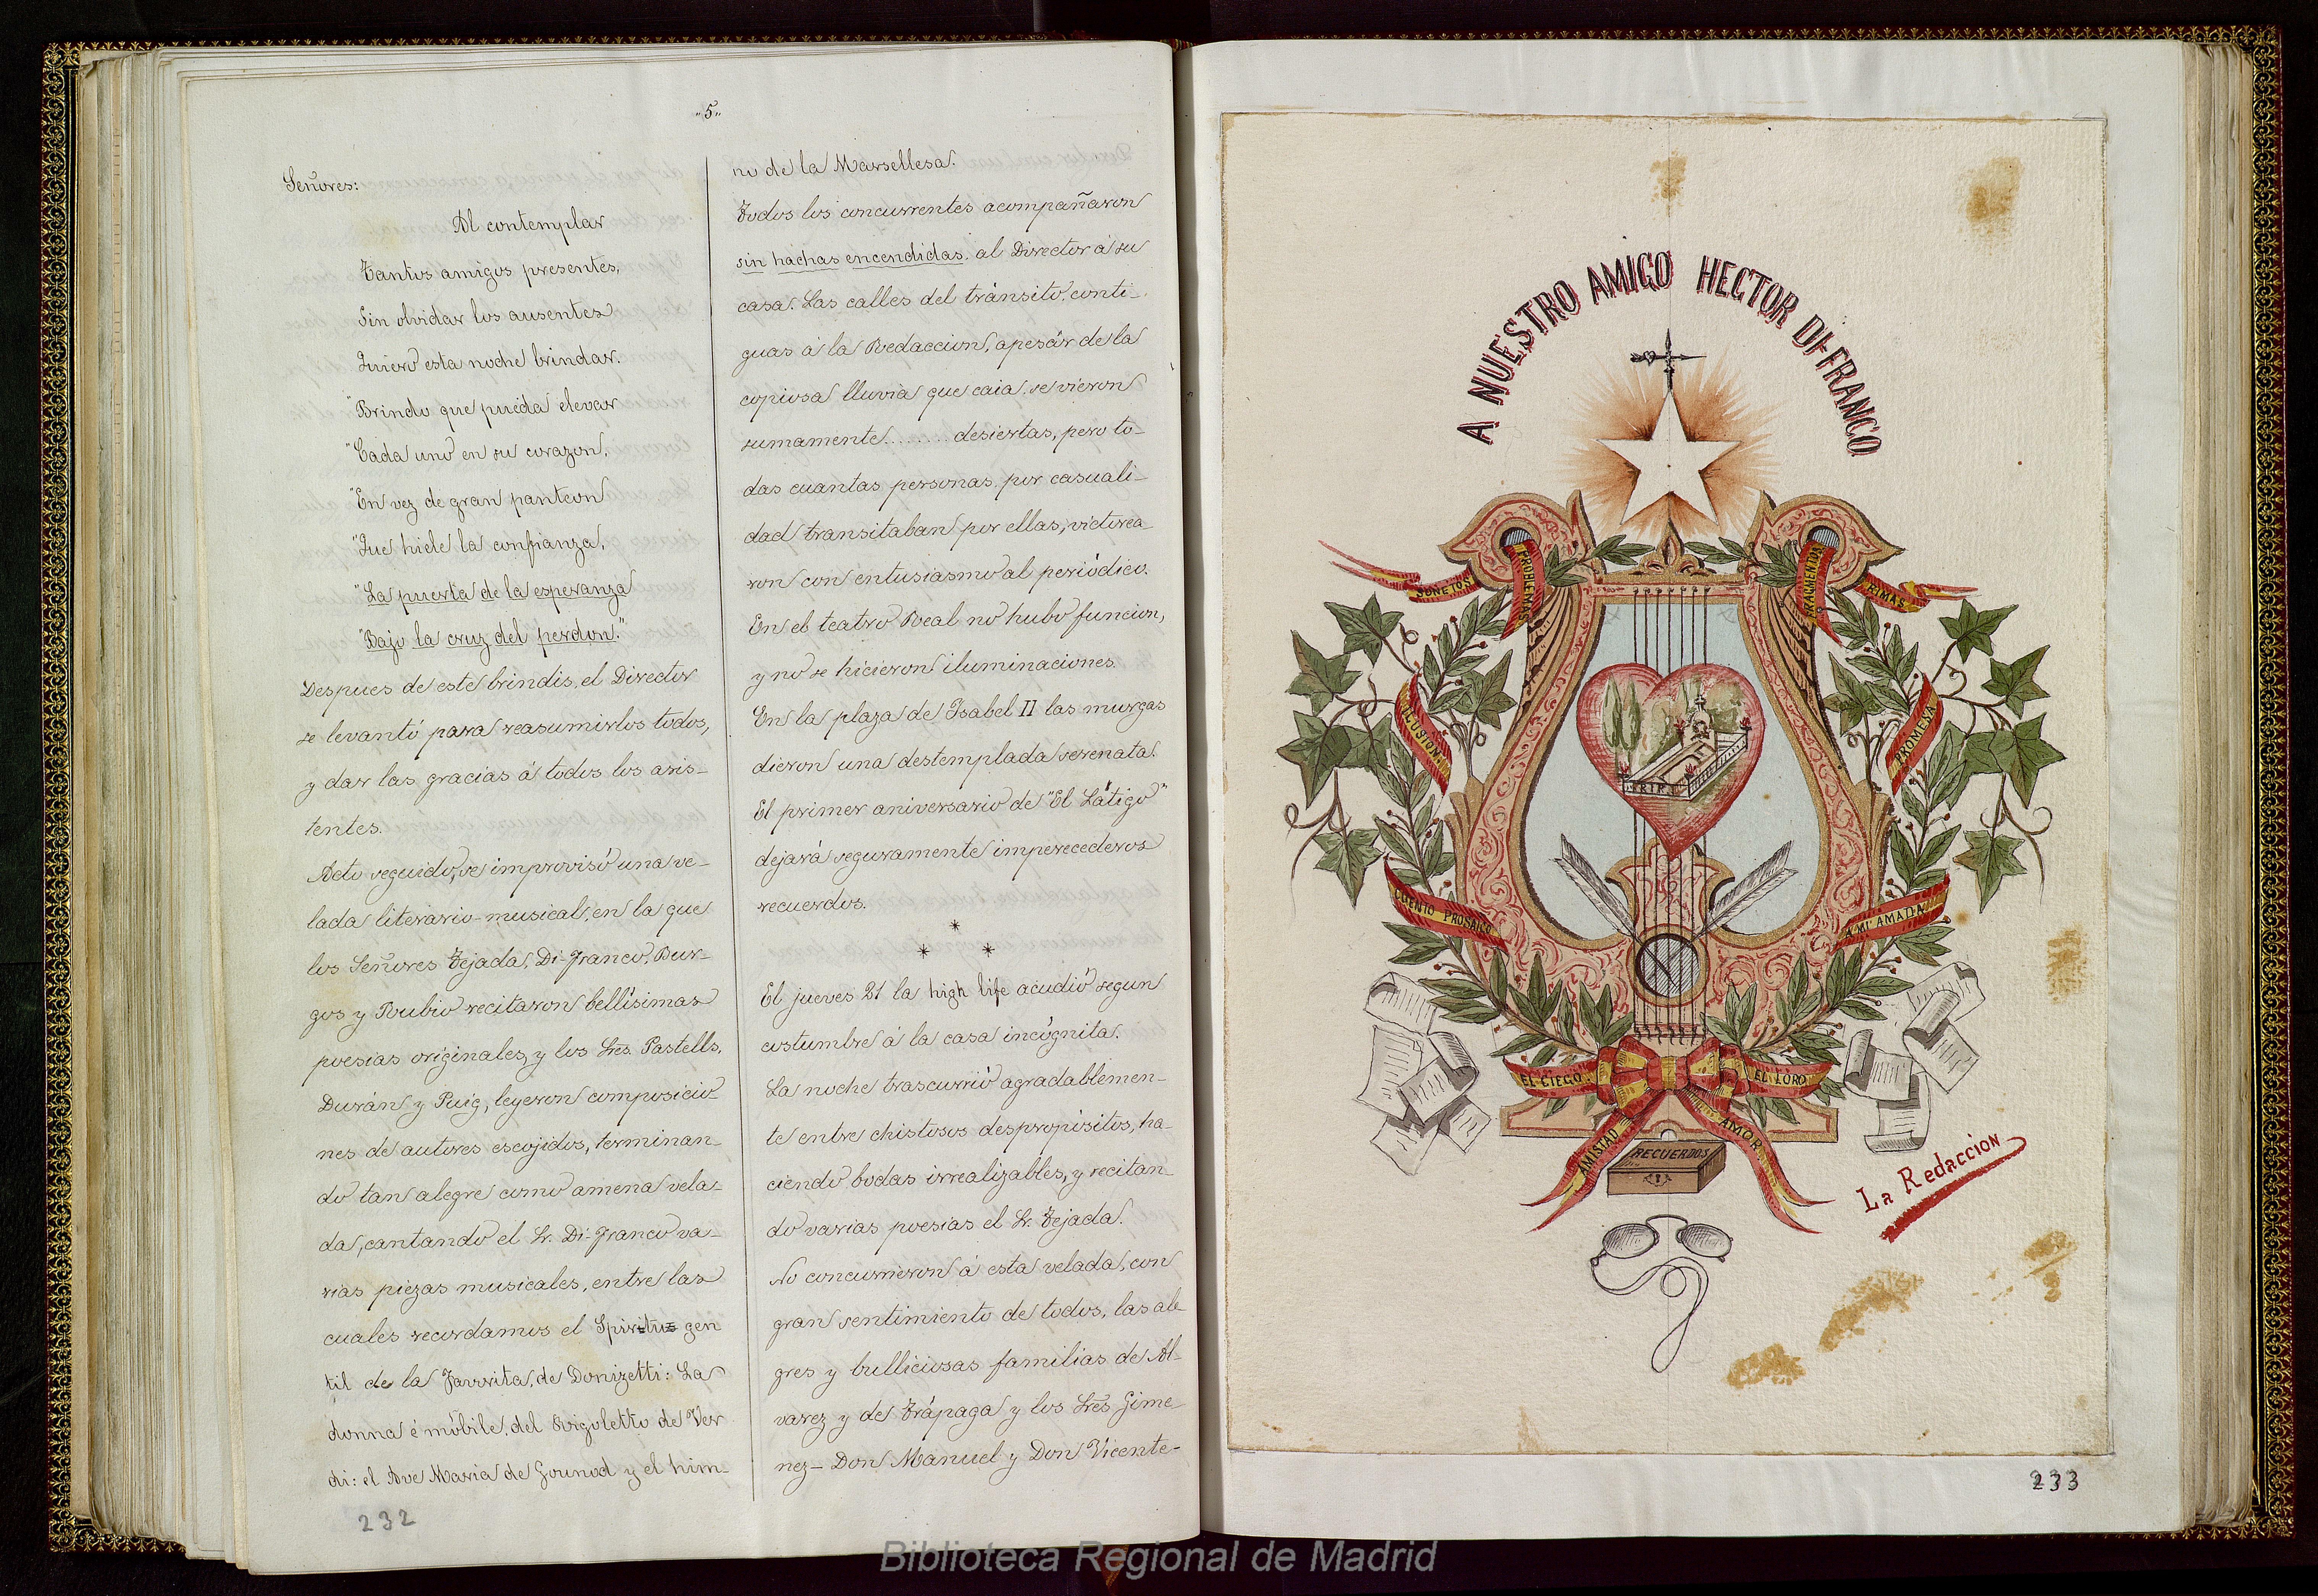 „5„
Señores:
Al contemplar
Tantos amigos presentes,
Sin olvidar los ausentes
Quiero esta noche brindar.
"Brindo que pueda elevar
"Cada uno en su corazon,
"En vez de gran panteon
"Que hiele la confianza,
"La puerta de la esperanza
"Bajo la cruz del perdon."
Despues de este brindis, el Director
se levantó para reasumirlos todos,
y dar las gracias á todos los asis-
tentes.
Acto seguido, se improvisó una ve-
lada literario-musical, en la que
los Señores Tejada, Di-Franco, Bur-
gos y Rubio recitaron bellísimas
poesias originales, y los Sres. Pastells,
Durán y Puig, leyeron composicio-
nes de autores escojidos, terminan-
do tan alegre como amena vela-
da, cantando el Sr. Di-Franco va-
rias piezas musicales, entre las
cuales recordamos el Spiritus gen
til de la Favorita, de Donizetti: La
donna é móbile, del Rigoletto de Ver
di: el Ave Maria de Gounod y el him-
232
no de la Marsellesa.
Todos los concurrentes acompañaron
sin hachas encendidas, al Director á su
casa. Las calles del tránsito, conti-
guas á la Redaccion, apesár de la
copiosa lluvia que caia, se vieron
sumamente ........ desiertas, pero to-
das cuantas personas, por casuali-
dad transitaban por ellas, victorea-
ron con entusiasmo al periódico.
En el teatro Real no hubo funcion,
y no se hicieron iluminaciones.
En la plaza de Isabel II las murgas
dieron una destemplada serenata.
El primer aniversario de "El Látigo"
dejará seguramente imperecederos
recuerdos.
* * *
El jueves 21 la high life acudió segun
costumbre á la casa incógnita.
La noche trascurrió agradablemen-
te entre chistosos despropósitos, ha-
ciendo bodas irrealizables, y recitan-
do varias poesias el Sr. Tejada.
No concurrieron á esta velada, con
gran sentimiento de todos, las ale
gres y bulliciosas familias de Al-
varez y de Trápaga y los Sres Gime
nez- Don Manuel y Don Vicente-
A NUESTRO AMIGO HECTOR DI-FRANCO
SONETOS
RIMAS
PROMESA
CUENTO PROSAICO
A MI AMADA
EL CIEGO
EL LORO
AMISTAD
AMOR
RECUERDOS
La Redaccion
233
Biblioteca Regional de Madrid